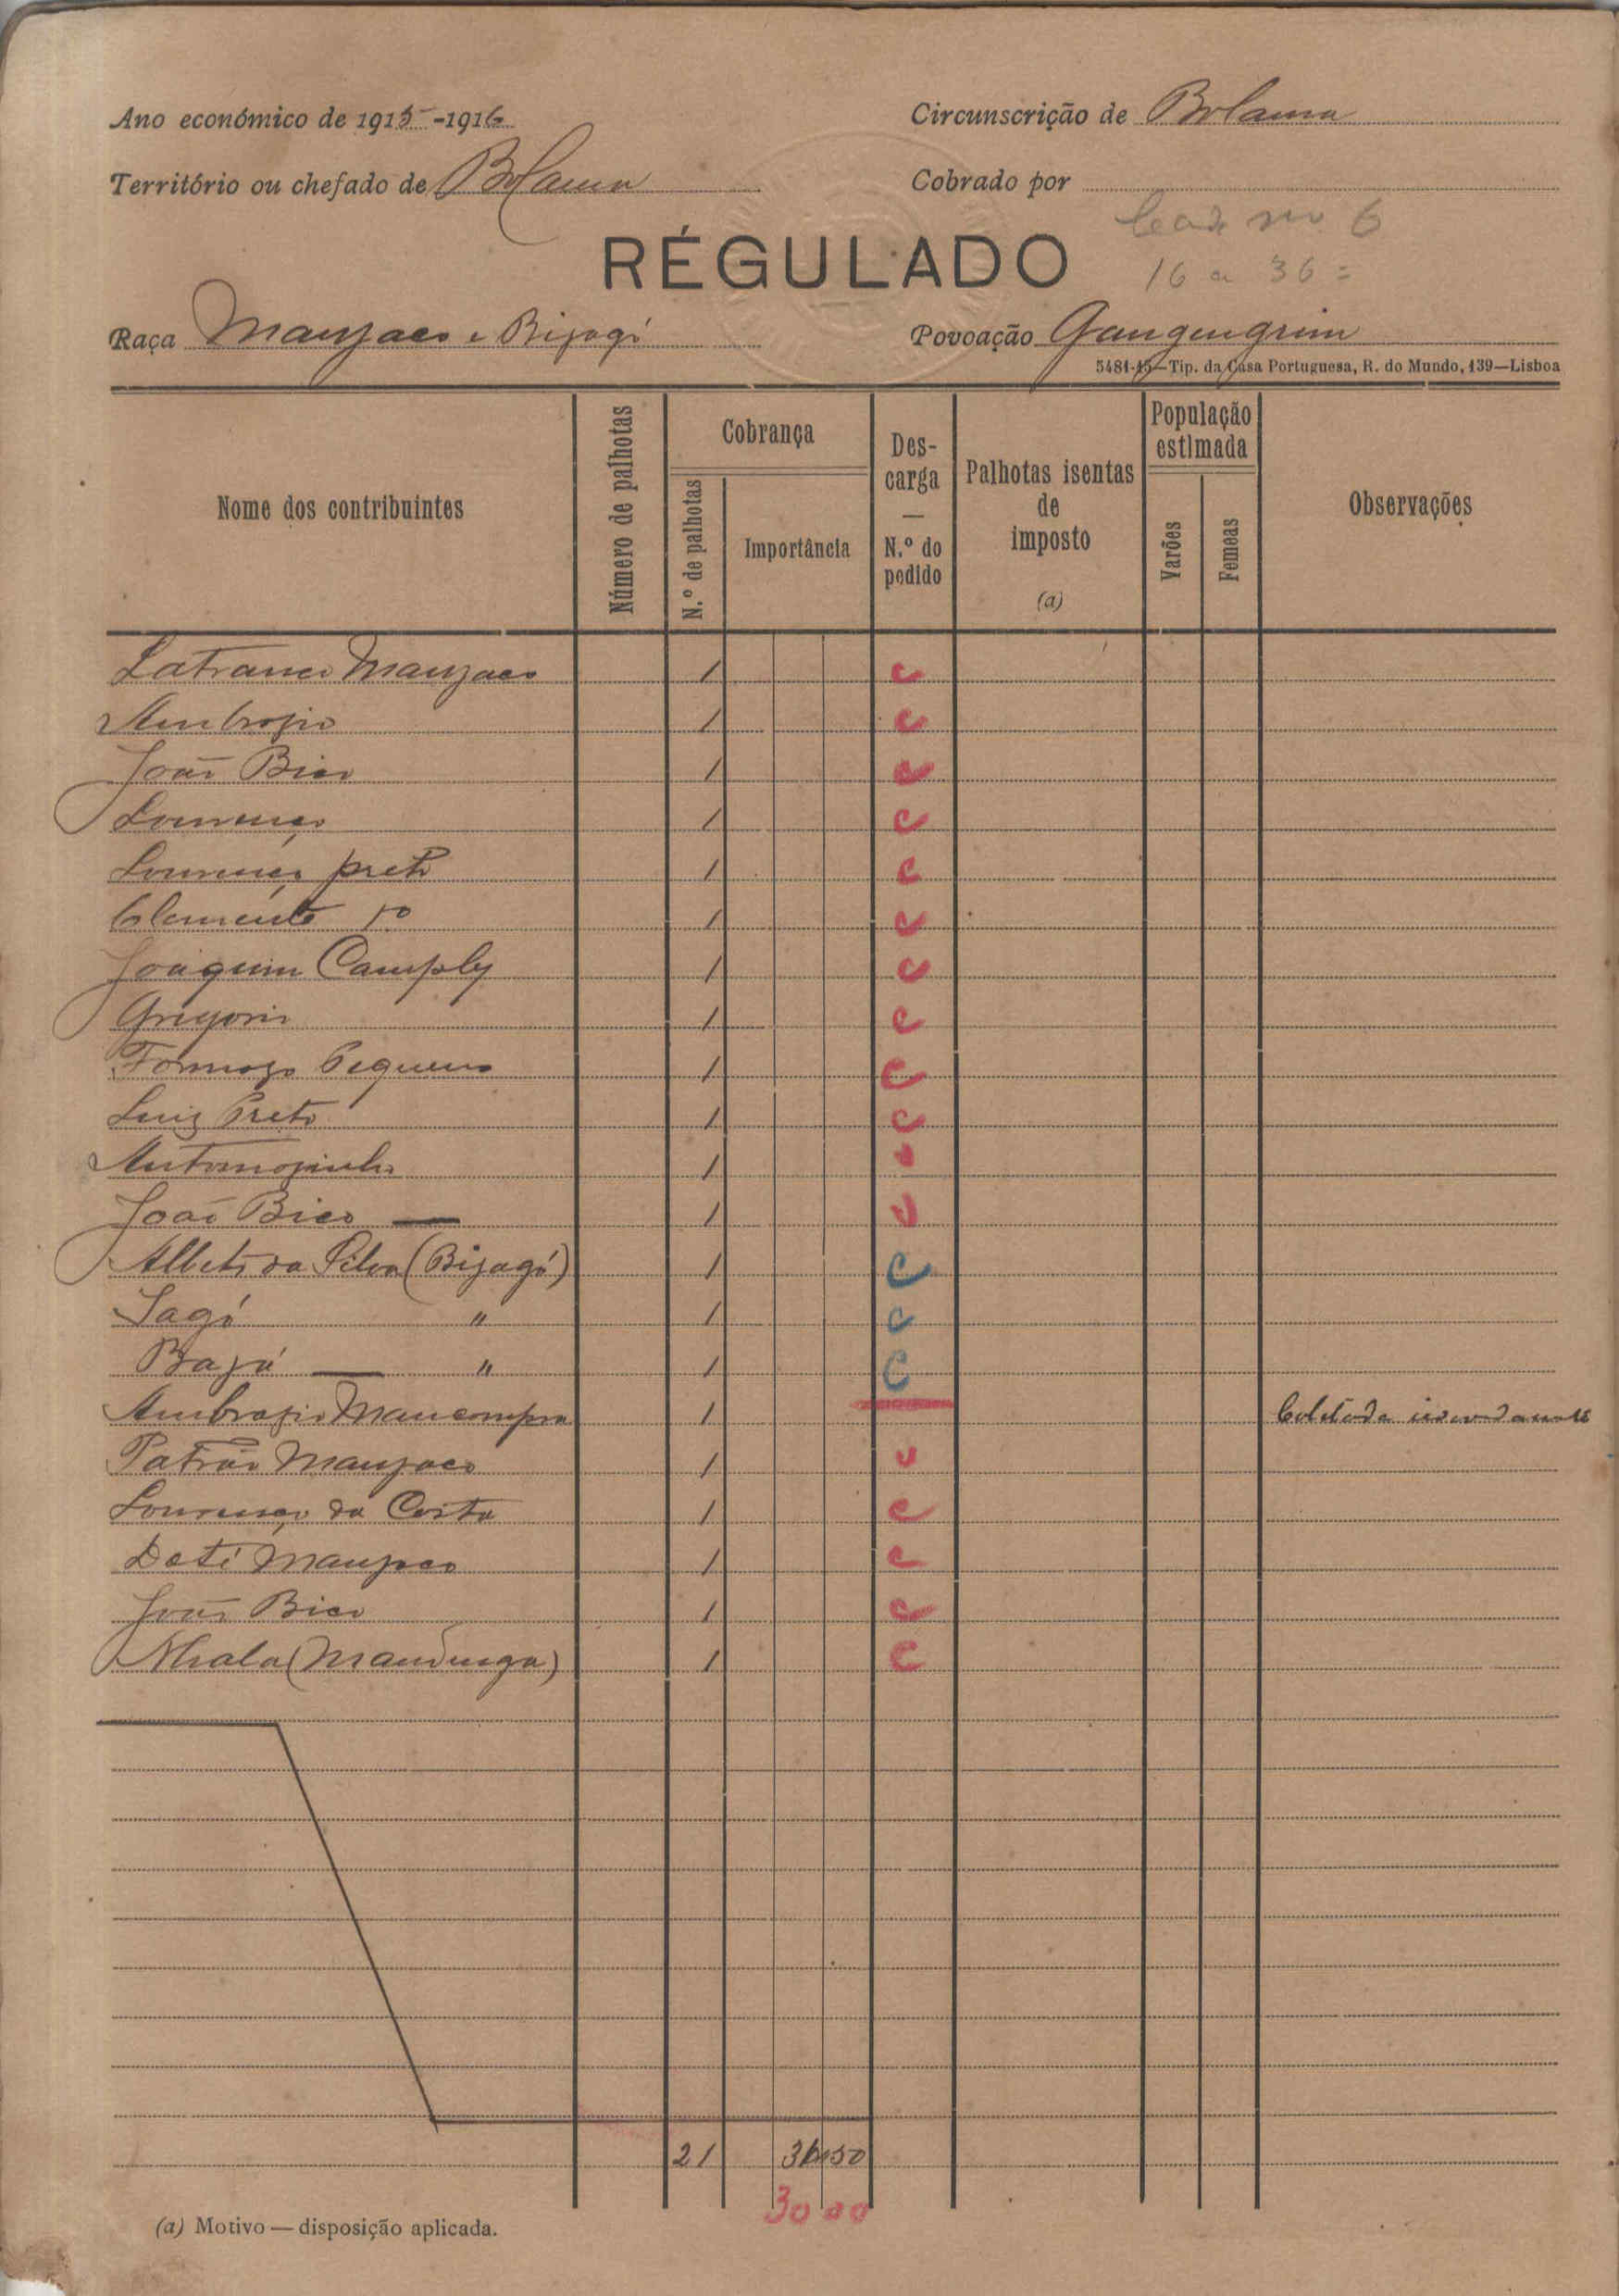 Ano económico de 1915-1916
Circunscrição de Bolama
Território ou chefado de Bolama
Cobrado por
6
RÉGULADO
16 a 36 =
Raça Manjaco e Bijagó
Povoação Gangengrim
5481-15—Tip. da Casa Portuguesa, R. do Mundo, 139—Lisboa
Nome dos contribuintes
Número de palhotas
Cobrança
N.º de palhotas
Importância
Des-
carga
—
N.º do
pedido
Palhotas isentas
de
imposto
(a)
População
estimada
Varões
Femeas
Observações
Manjaco 1 c
Ambrosio 1 c
João Bico 1 c
Lourenço 1 c
Lourenço preto 1 c
Clemente 1 c
Joaquim Camply 1 c
Gregorio 1 c
Formozo Pequeno 1 c
Luiz Preto 1 c
Antoninho 1
João Bico — 1
Alberto da Silva (Bijagó) 1 C
Sagó " 1 c
Bajá — " 1 C
Ambrosio 1
Patrão Manjaco 1
Lourenço da Costa 1 c
Dati Manjaco 1 c
João Bico 1 c
Nhala (Mandinga) 1 C
21 31 50
30 00
(a) Motivo — disposição aplicada.